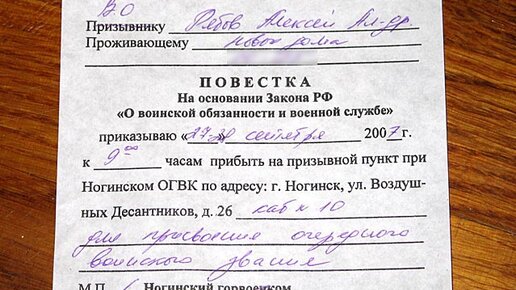 ВО
Призывнику Рябов Алексей Ал-др.
Проживающему
ПОВЕСТКА
На основании Закона РФ
«О воинской обязанности и военной службе»
приказываю «27» сентября 2007 г.
к 9 00 часам прибыть на призывной пункт при
Ногинском ОГВК по адресу: г. Ногинск, ул. Воздуш-
ных Десантников, д. 26 каб н 10
для присвоения очередного
воинского звания
М.П. Ногинский горвоенком